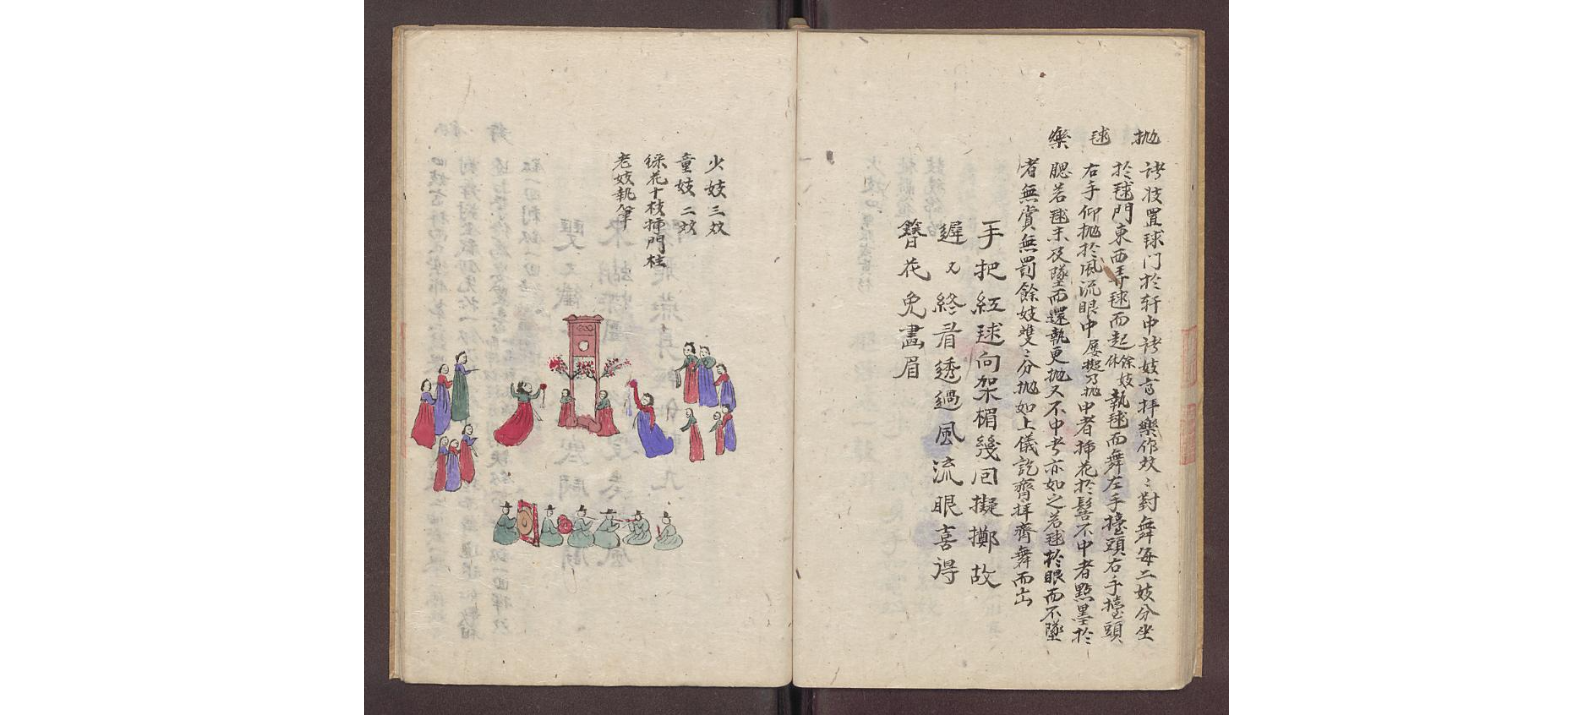 抛
毬
樂
諸妓置球门於轩中諸妓言拜樂作妓〻對舞每二妓分坐
於毬門東西弄毬而起餘妓休執毬而舞左手擡頭右手擡頭
右手仰抛於風流眼中屡擬乃抛中者揷花於髻不中者點墨於
腮若毬未及墜而還執更抛又不中者亦如之若毬於眼而不墜
者無賞無罰餘妓雙〻分抛如上儀訖齊拜齊舞而出
手把紅球向架楣幾回擬擲故
遲〻終看透過風流眼喜得
簪花免畵眉
少妓三双
童妓二双
綵花十枝揷門柱
老妓執筆